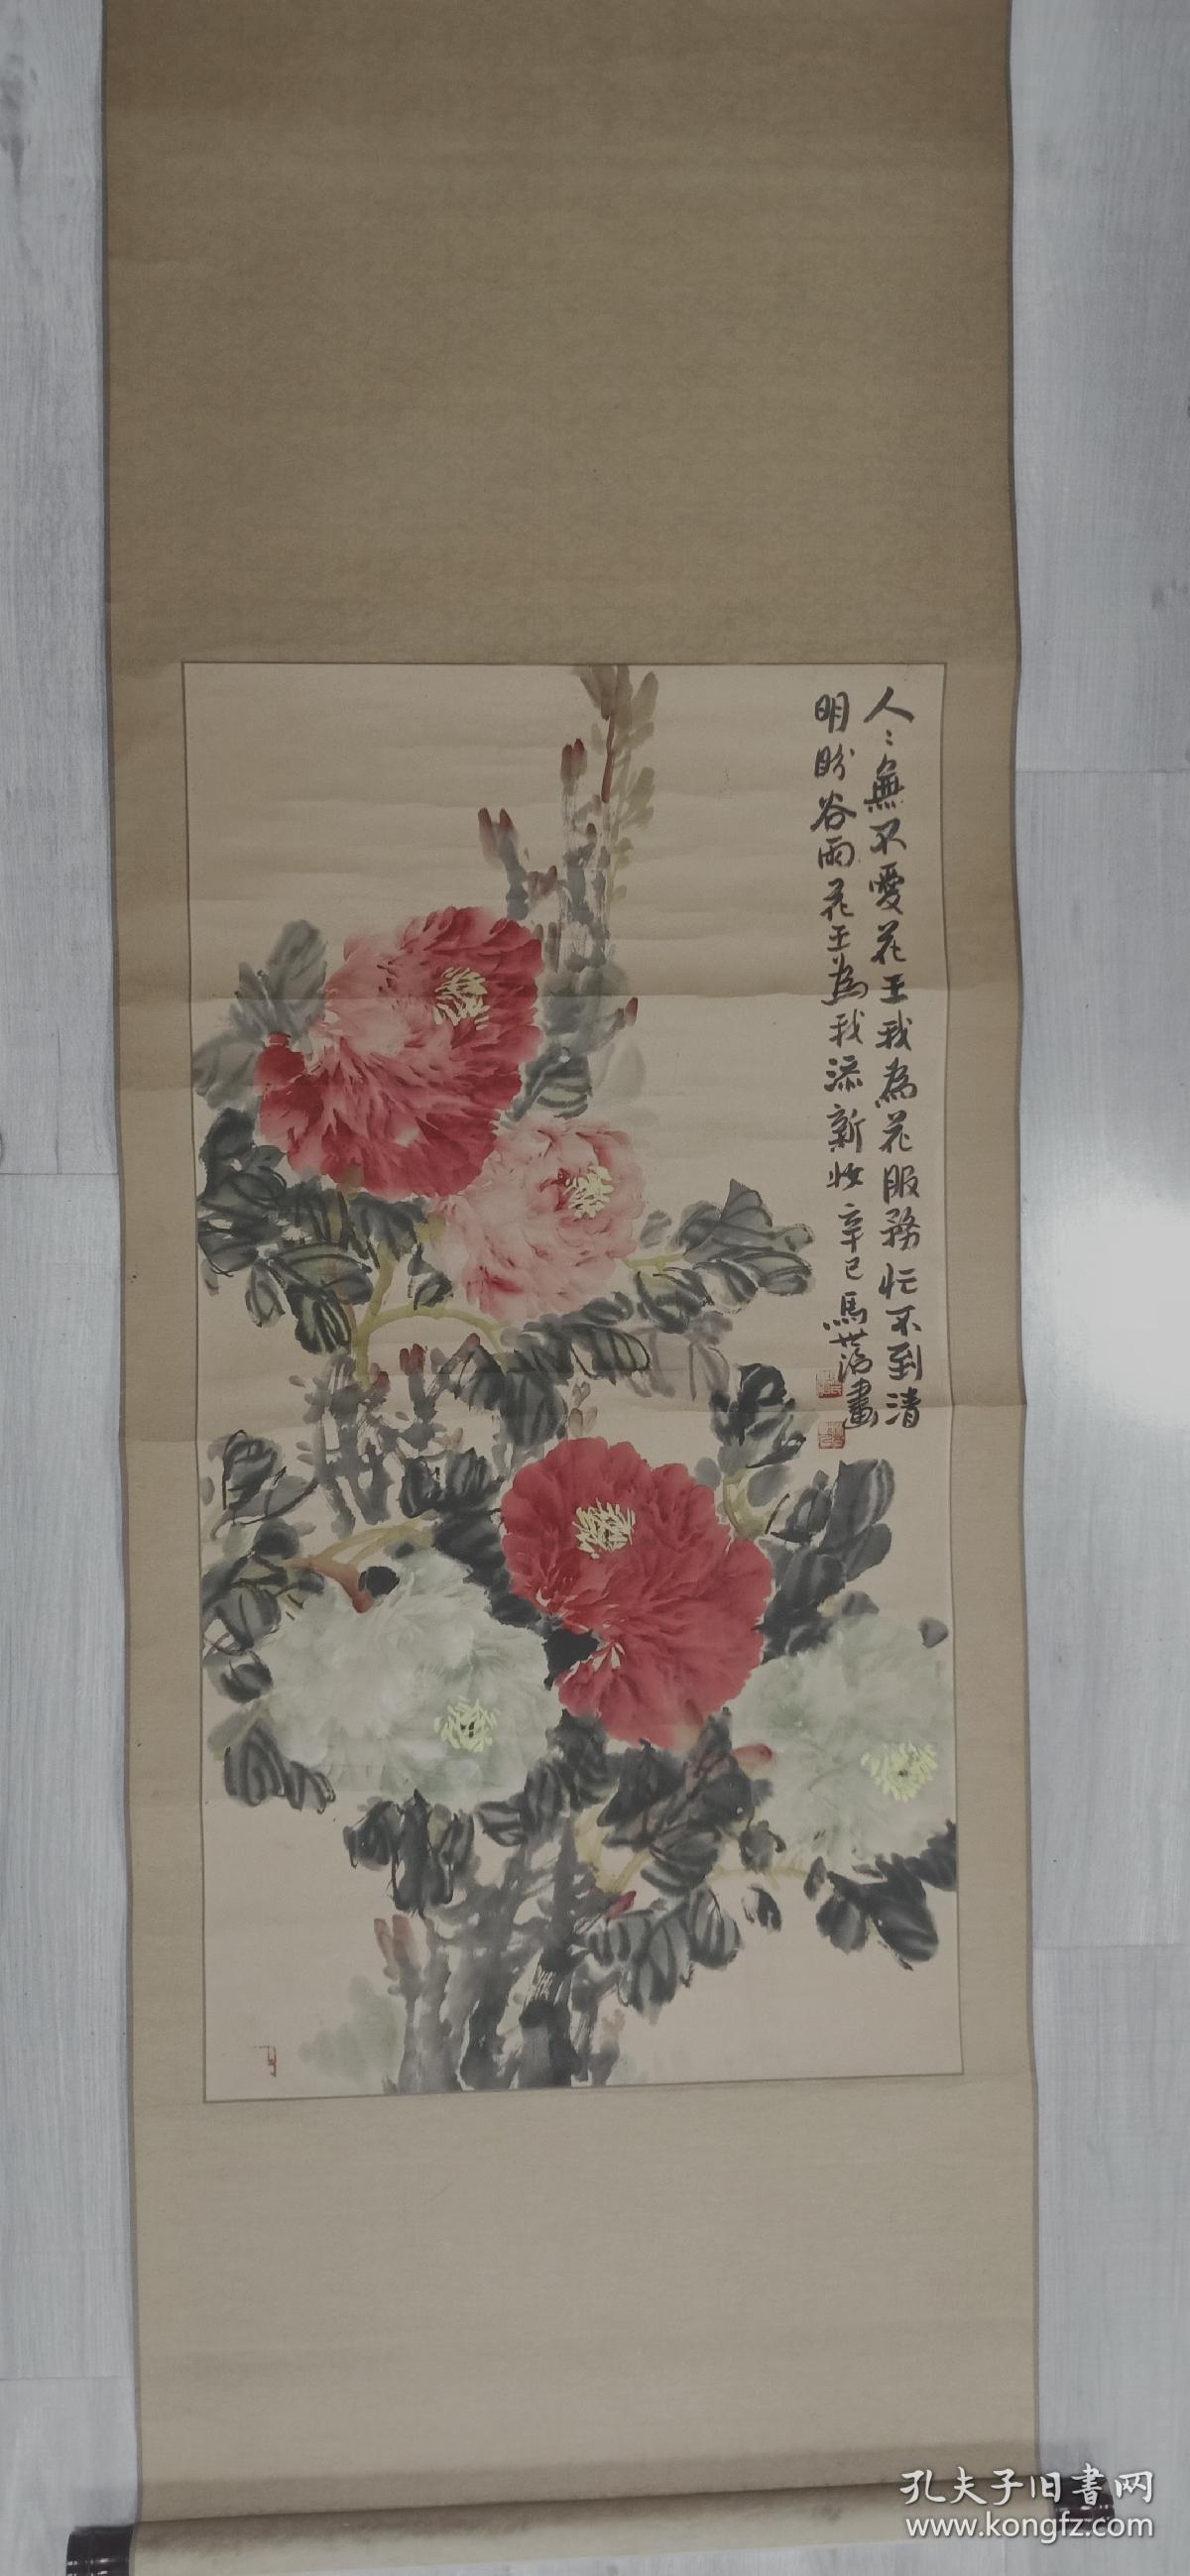 人〻無不愛花王我為花服務忙不到清
明盼谷雨花王為我添新妝辛巳馬世治畫
孔夫子旧書网
www.kongfz.com